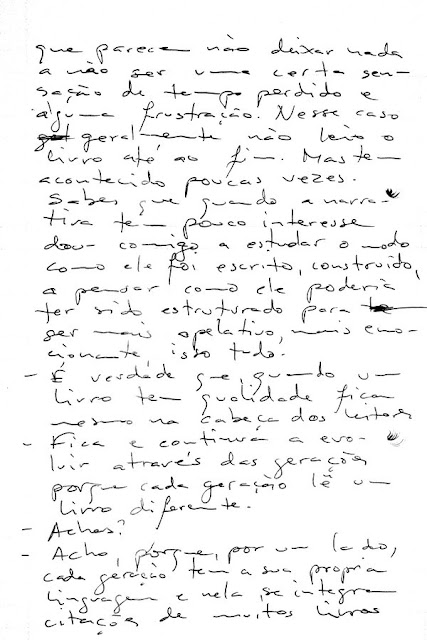 que parecem não deixar nada
a não ser uma certa sen-
sação de tempo perdido e
alguma frustração. Nesse caso
geralmente não leio o
livro até ao fim. Mas tem
acontecido poucas vezes.
Sabes que quando a narra-
tiva tem pouco interesse
dou comigo a estudar o modo
como ele foi escrito, construido,
a pensar como ele poderia
ter sido estruturado para
ser mais apelativo, mais emo-
cionante isso tudo.
- É verdade que, quando um
livro tem qualidade fica
mesmo na cabeça dos leitores
- Fica e continua a evo-
luir através das gerações
porque cada geração lê um
livro diferente.
- Achas?
- Acho, porque, por um lado,
cada geração tem a sua propria
linguagem e nela se integram
citações de muitos livros